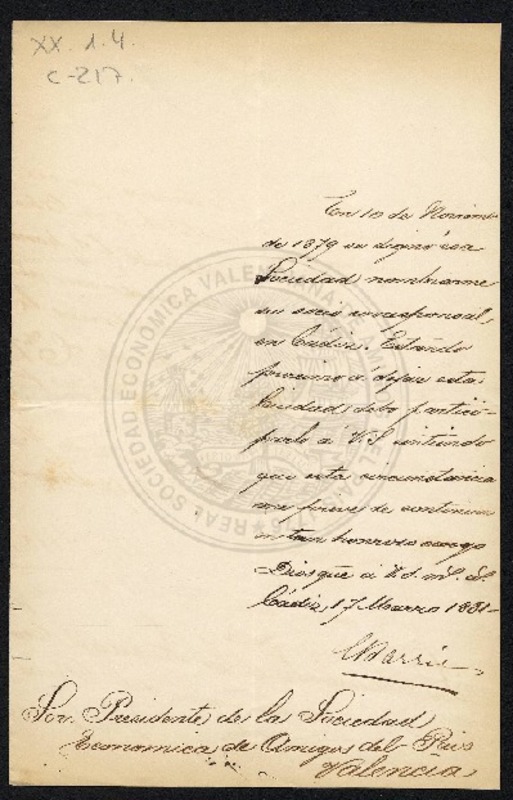 XX. 1.4.
C-217.
En 10 de Noviembr
de 1879 se dignó esa
Sociedad nombrarme
su socio corresponsal,
en Cádiz. Estando
procsimo á dejar esta
Ciudad, debo partici-
parlo á V.S. sintiendo
que esta circunstancia
me prive de continuar
en tan honroso cargo
Dios gue á V.S. ms. as.
Cádiz, 17 Marzo 1881-
Sor. Presidente, de la Sociedad,
Economica de Amigos del Pais
Valencia,
REAL SOCIEDAD ECONOMICA VALENCIANA DE AMIGOS DEL PAIS 1776